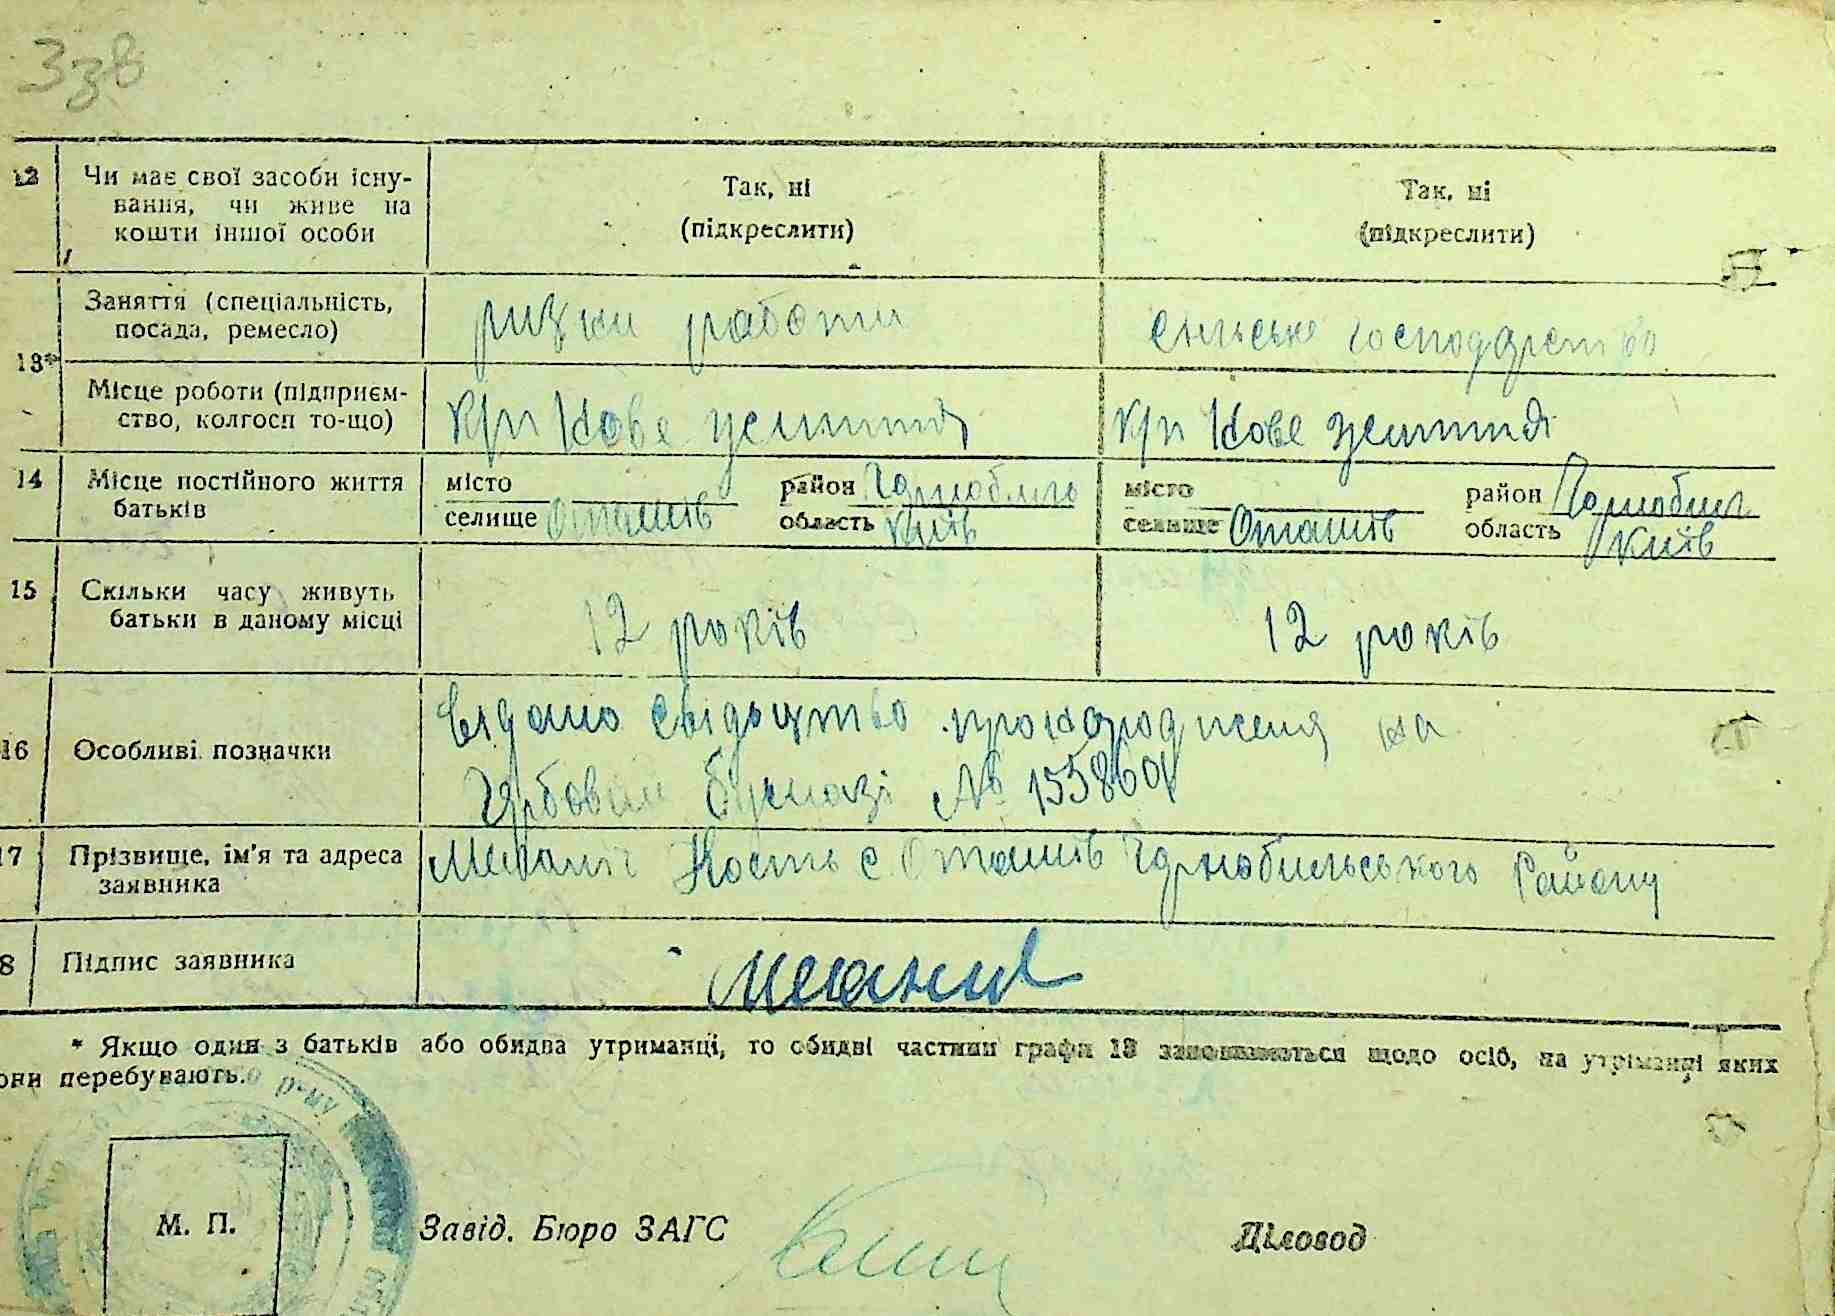 338
12 Чи має свої засоби існу-
вання, чи живе на
кошти іншої особи
Так, ні
(підкреслити)
Так, ні
(підкреслити)
13*
Заняття (спеціальність,
посада, ремесло)
різни работи
сильске господарство
Місце роботи (підприєм-
ство, колгосп то-що)
к/г Нове
к/г Нове
14 Місце постійного життя
батьків
місто
селище Оташів
район
область Київ
місто
селище Оташів
район
область Київ
15 Скільки часу живуть
батьки в даному місці
12 років
12 років
16 Особливі позначки
видано свідоцтво про народженя на
гербовом № 155860
17 Прізвище, ім'я та адреса
заявника
Кость с Оташів Чорнобильського Району
8 Підпис заявника
* Якщо один з батьків або обидва утриманці, то обидві частини графи 13 заповнюються щодо осіб, на утриманці яких
они перебувають.
М. П.
Завід. Бюро ЗАГС
Діловод